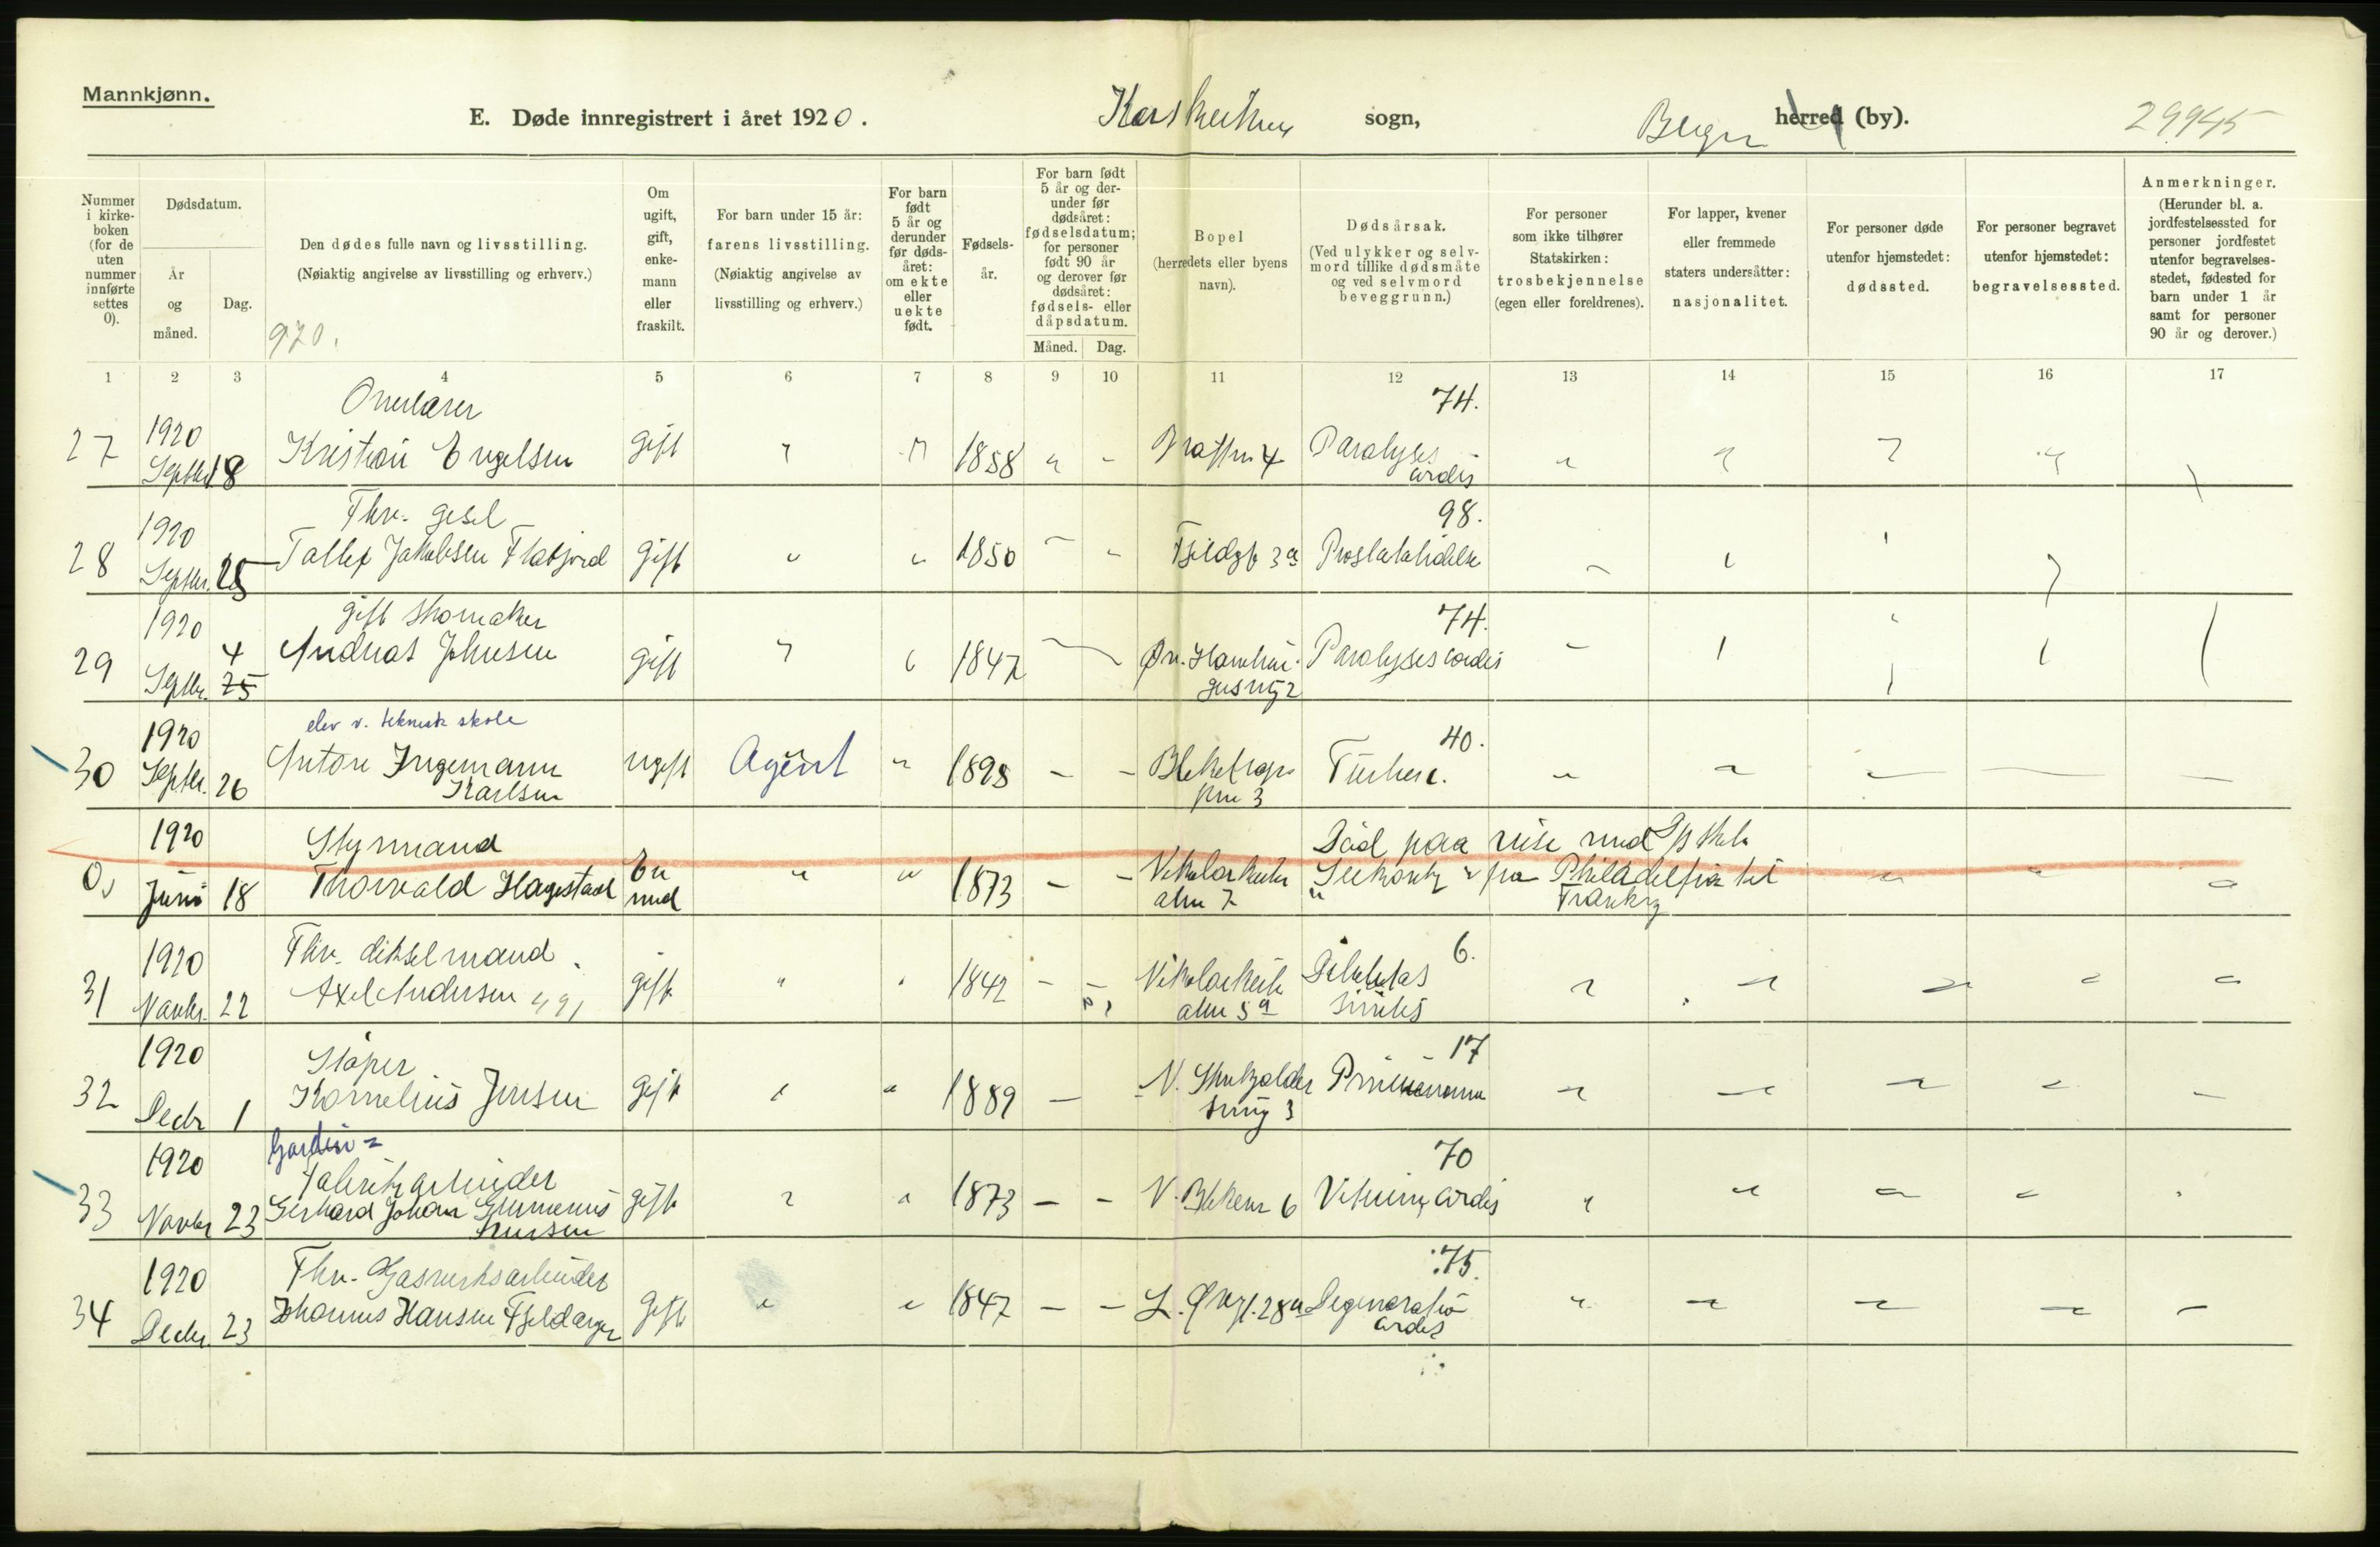 Mannkjønn.
E. Døde innregistrert i året 1920.
Korskirken sogn,
herred (by).
29945
Nummer i kirke-boken (for de uten nummer innførte settes 0).
Dødsdatum.
År og måned.
Dag.
Den dødes fulle navn og livsstilling.
(Nøiaktig angivelse av livsstilling og erhverv.)
970.
Om ugift, gift, enke-mann eller fraskilt.
For barn under 15 år: farens livsstilling.
(Nøiaktig angivelse av livsstilling og erhverv.)
For barn født 5 år og derunder før døds-året: om ekte eller uekte født.
Fødsels-år.
For barn født 5 år og der-under før dødsåret: fødselsdatum; for personer født 90 år og derover før dødsåret: fødsels- eller dåpsdatum.
Måned. Dag.
Bopel
(herredets eller byens navn).
Dødsårsak.
(Ved ulykker og selv-mord tillike dødsmåte og ved selvmord beveggrunn.)
For personer som ikke tilhører Statskirken: trosbekjennelse (egen eller foreldrenes).
For lapper, kvener eller fremmede staters undersåtter: nasjonalitet.
For personer døde utenfor hjemstedet: dødssted.
For personer begravet utenfor hjemstedet: begravelsessted.
Anmerkninger.
(Herunder bl. a. jordfestelsessted for personer jordfestet utenfor begravelses-stedet, fødested for barn under 1 år samt for personer 90 år og derover.)
1 2 3 4 5 6 7 8 9 10 11 12 13 14 15 16 17
74.
27 1920 Septbr 18 Kristian Engelsen gift 1858 4 Paralysis cordis
Fhv. gesel 98.
28 1920 Septbr. 25 Jakobsen gift 1850 3a Prostatalidelse
gift skomaker 74.
29 1920 Septbr. 4 25 Andreas Johnsen gift 1847 Paralyses cordis
elev v. teknisk skole 40.
30 1920 Septbr. 26 Anton Ingemann Karlsen ugift Agent 1898 3 Tuberc.
Styrmand Død paa reise med
0, 1920 Juni 18 Thorvald Hagestad En md 1873 Nikolaikirke alm 7 fra Philadelfia til Frankrg
Fhv. dikselmand 6.
31 1920 Novbr. 22 Axel Andersen 491 gift 1842 Nikolaikirke alm 5a Diabetes
Støper 17
32 1920 Decbr 1 Kornelius Jensen gift 1889 3
Gardin= 70
fabrikarbeider
33 1920 Novbr 23 Gerhard Johan gift 1873 6 Vitium cordis
Fhv. Gasverksarbeider 75.
34 1920 Decbr. 23 Johannes Hansen gift 1847 28a Degeneratio cordis